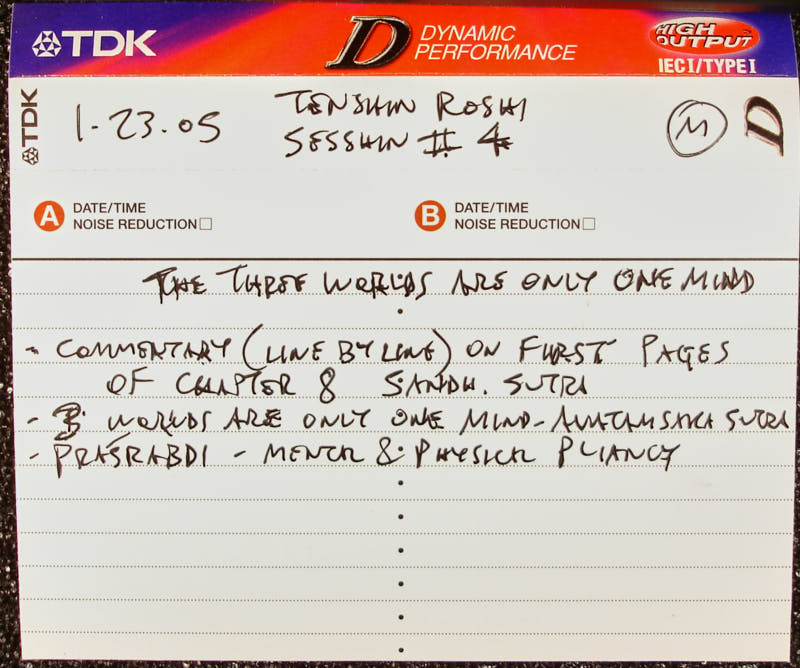 TDK
D DYNAMIC
PERFORMANCE
HIGH
OUTPUT
IEC I/TYPE I
TDK
1-23-05
TENSHIN ROSHI
SESSHIN # 4
M
D
A DATE/TIME
NOISE REDUCTION
B DATE/TIME
NOISE REDUCTION
THE THREE WORLDS ARE ONLY ONE MIND
- COMMENTARY (LINE BY LINE) ON FIRST PAGES
OF CHAPTER 8 SANDH. SUTRA
- 3 WORLDS ARE ONLY ONE MIND - AVATAMSAKA SUTRA
- PRAŚRABDI - MENTAL & PHYSICAL PLIANCY